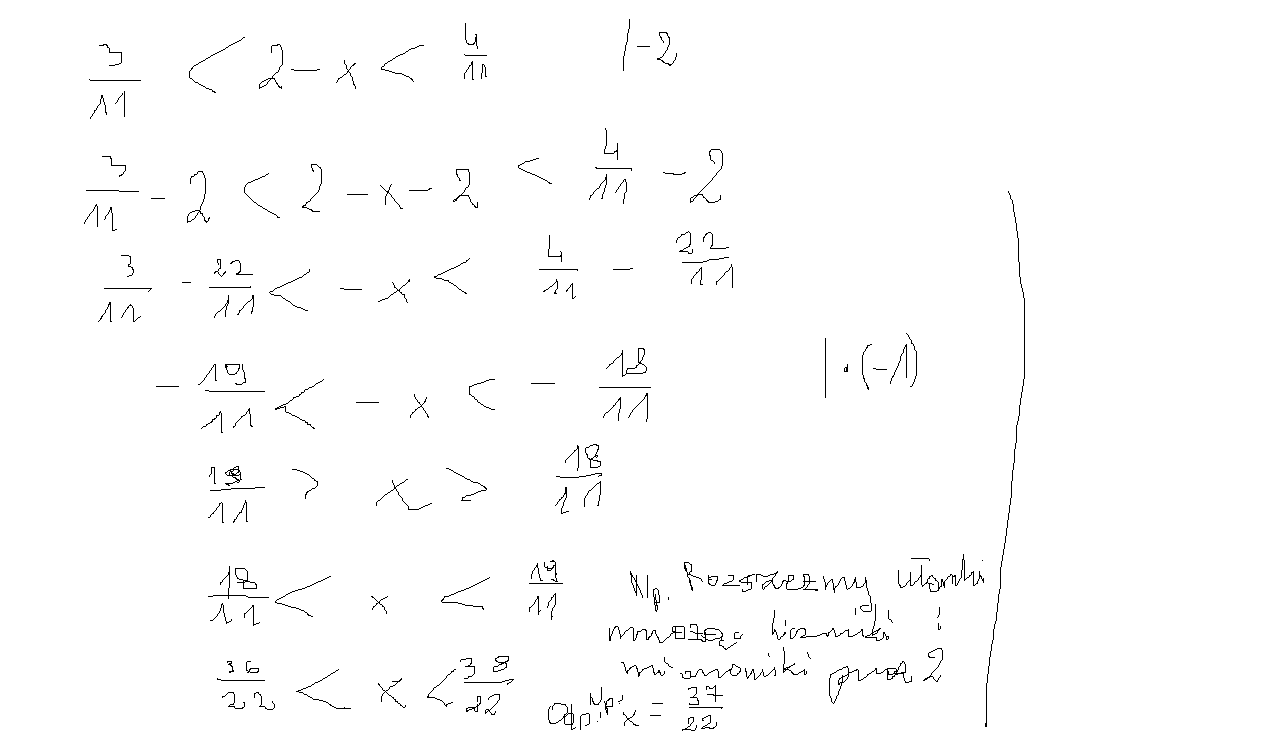 3/11 < 2 - x < 4/11 | -2
3/11 - 2 < 2 - x - 2 < 4/11 - 2
3/11 - 22/11 < - x < 4/11 - 22/11
- 19/11 < - x < - 18/11 | · (-1)
19/11 > x > 18/11
18/11 < x < 19/11
Np. Rozszezmy ułamki
mnożąc liczniki i
mianowniki przez 2
36/22 < x < 38/22
Odp. Np. x = 37/22